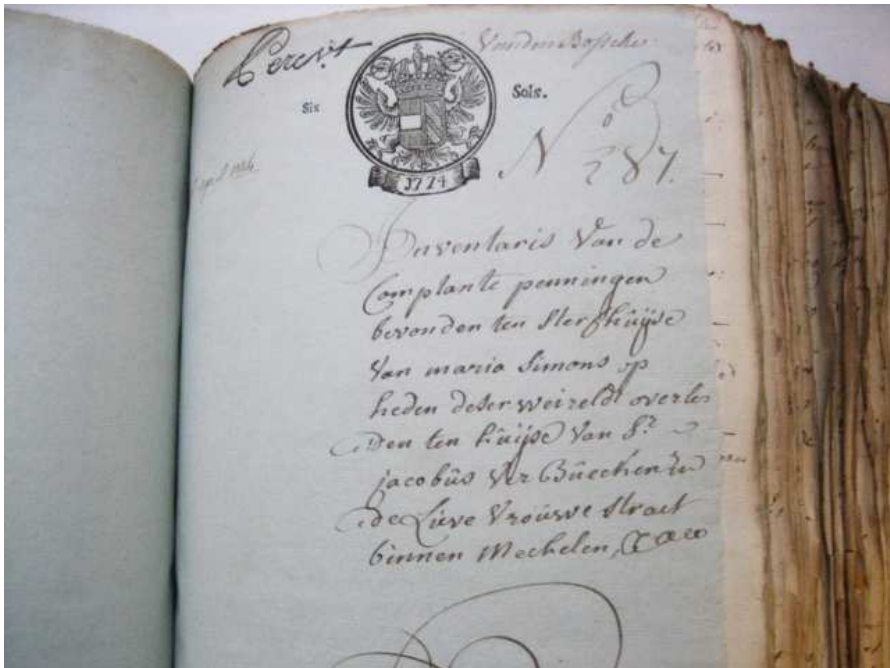 Vanden Bossche
Six Sols.
1774
No 287.
Inventaris Van de
Comptante penningen
bevonden ten sterfhuÿse
Van maria Simons op
heden deser weireldt overle
den ten huÿse Van Sr
jacobus Ver Buecken in
de Lieve Vrouwe Straet
binnen Mechelen,